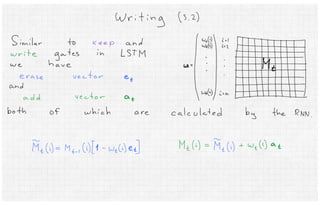 Writing (3.2)
Similar to keep and
write gates in LSTM
we have
erase vector eₜ
and
add vector aₜ
both of which are calculated by the RNN.
w =
i=1
i=2
i=n
Mₜ
M̃ₜ(i) = Mₜ₋₁(i)[1 - wₜ(i)eₜ]
Mₜ(i) = M̃ₜ(i) + wₜ(i)aₜ